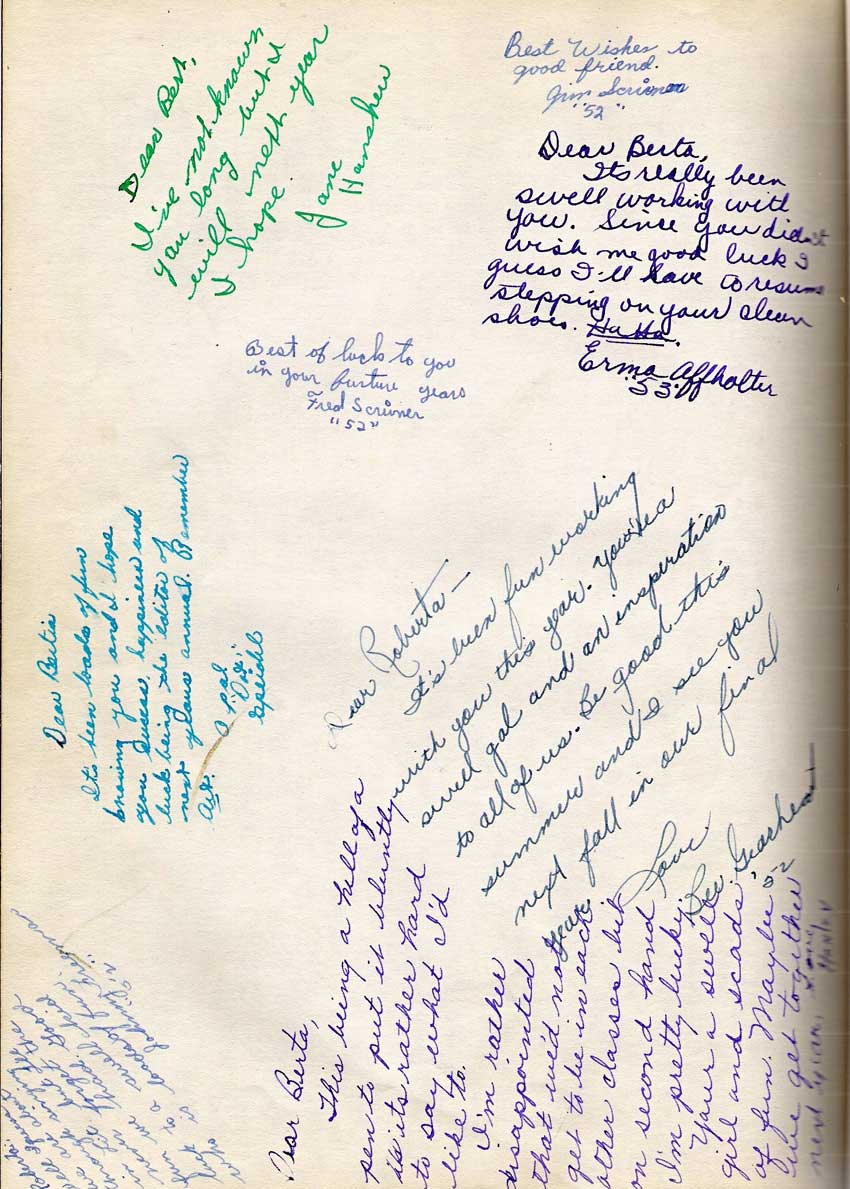 Dear Bert,
I've not known
you long but I
will next year
I hope.
Jane
Hanshew
Best Wishes to
good friend.
Jim Scrivner
"52"
Dear Berta,
Its really been
swell working with
you. Since you didn't
wish me good luck I
guess I'll have to resume
stepping on your clean
shoes. Ha Ha.
Erma Affholter
'53'
Best of luck to you
in your furture years
Fred Scrivner
"52"
Dear Bertie
It's been loads of fun
knowing you and I hope
you success, happiness and
luck being the editor of
next years annual. Remember
a pal
Speidel
Dear Roberta —
It's been fun working
with you this year. You're a
swell gal and an inspiration
to all of us. Be good this
summer and I see you
next fall in our final
year.
Love
'52
Dear Berta,
This being a hell of a
pen to put it bluntly
its rather hard
to say what I'd
like to.
I'm rather
disappointed
that we'd not
get to be in each
other classes but
on second hand
I'm pretty lucky.
Your a swell
girl and scads
of fun. Maybe
we get together
next year.